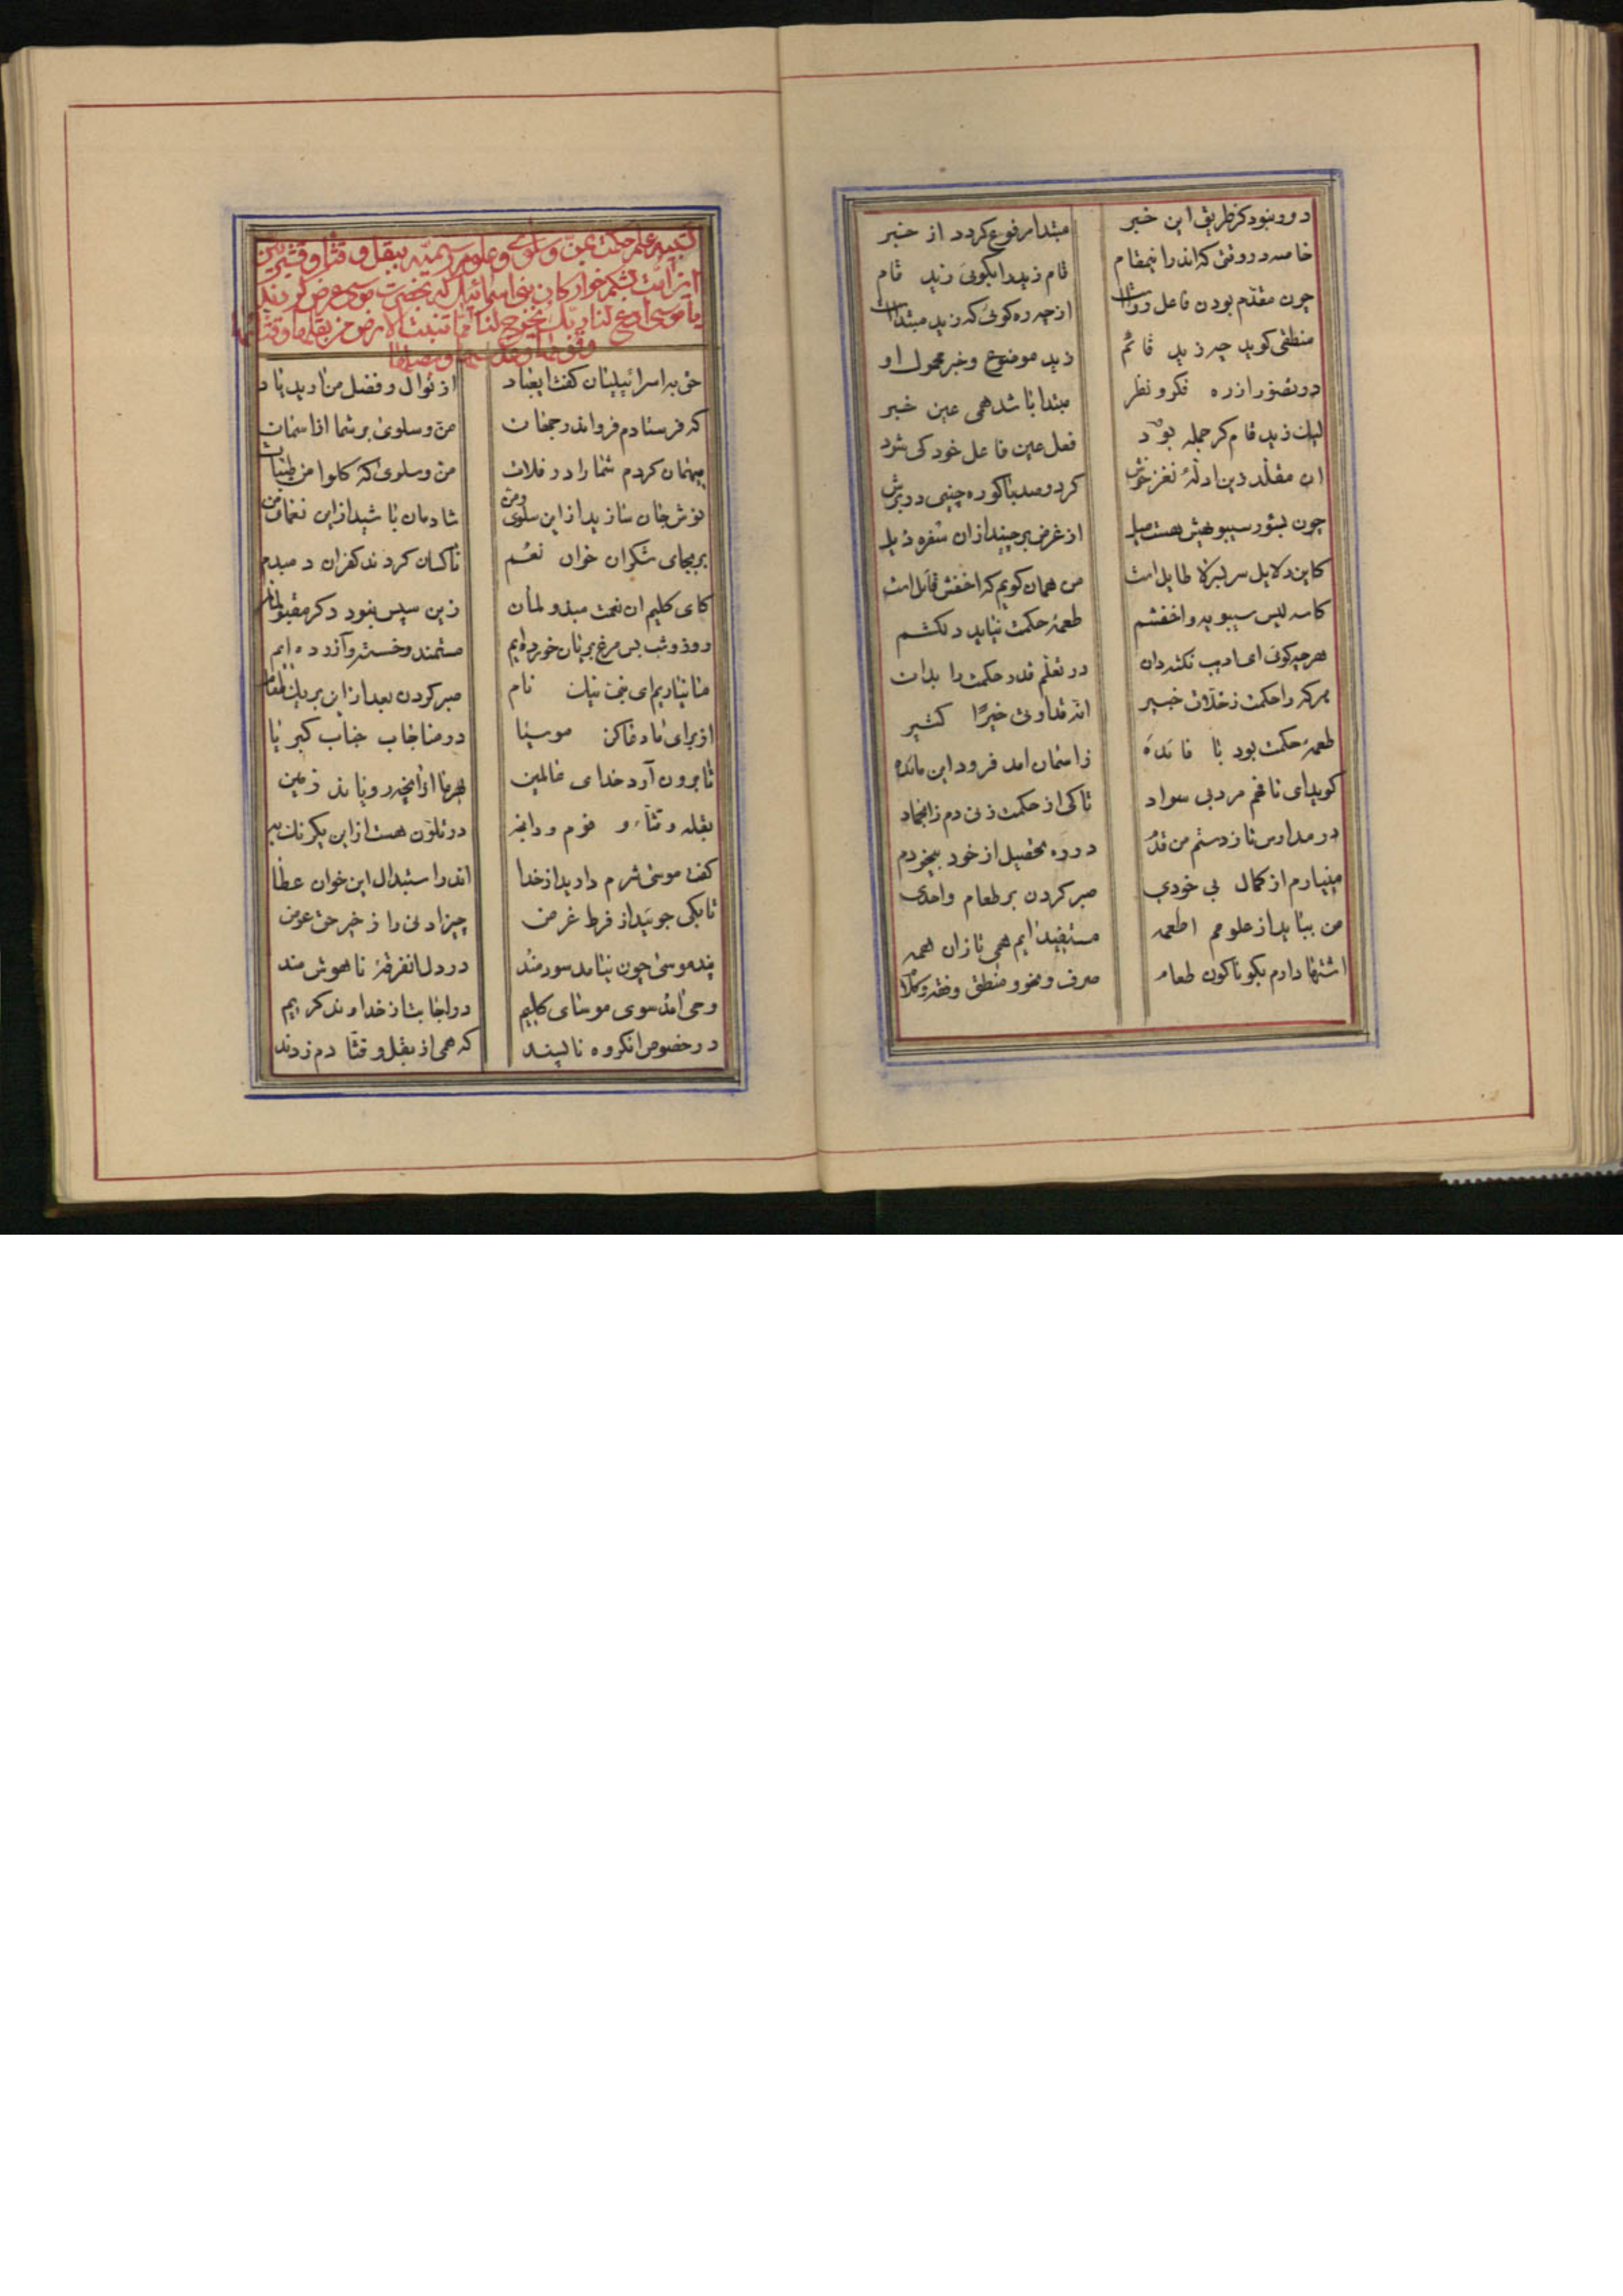 دور نبود کز طریق این خبر مبتدا مرفوع کردد از خبر
خاصه در وقتی که اندر اینمقام قام زید را بکوئی زید قام
چون مقدم بودن فاعل رواست از چه ره کوئی که زید مبتداست
منطقی کوید چه زید قائم زید موضوع و خبر محمول او
در تصور از ره فکر و نظر مبتدا باشد همی عین خبر
لیک زید قام کر جمله بود فعل عین فاعل خود کی شود
ان مقلد دین ادله نغز خوش کرد و صد باکوره چینی در برش
چون بسور سیبویهش هست میل از غرض برچیند ازان سفره ذیل
کاین دلایل سربسر لا طایل است من همان کویم که اخفش قائل است
کاسه لیس سیبویه و اخفشم طعمه حکمت نیاید دلکشم
هرچه کوئی ای ادیب نکته دان در تعلم قدر حکمت را بدان
هر که را حکمت ز خلاق خبیر انه قد اوتی خیرا کثیر
طعمه حکمت بود با فائده ز اسمان امد فرود این مائده
کوید ای نافهم مرد بی سواد تا کی از حکمت زنی دم ز انجماد
در مدارس تا زدستم من قدم در ره تحصیل از خود بیخودم
مینیارم از کمال بی خودی صبر کردن بر طعام واحدی
من بباید از علومم اطعمه مستفید ایم همی تا زان همه
اشتها دارم بکوناکون طعام صرف و نحو و منطق و فقه و کلام
تشبیه علم حکمت بمن و سلوی و علوم رسمیه ببقل و قثا و
از امت شکم خوارکان بنی اسرائیل که بحضرت موسی عرض کردند
یا موسی ادع لنا ربک یخرج لنا مما تنبت الارض من بقلها و قثائها
و فومها و عدسها و بصلها
حق به اسرائیلیان کفت ایعباد از نوال و فضل من ارید یاد
که فرستادم فرو اندر جهات من و سلوی بر شما از اسمان
میهمان کردم شما را در فلات من و سلوی که کلوا من طیبات
نوش جان سازید از این سلوی و من شادمان باشید از این نعمای من
بر بجای شکران خوان نعم ناکسان کردند کفران دمبدم
کای کلیم ان نعمت مبذولمان زین سپس نبود دکر مقبولمان
روز و شب بس مرغ بریان خورده ایم مستمند و خسته و آزرده ایم
ما نیاریم ای نجی نیک نام صبر کردن بعد از این بر یک طعام
از برای ما دعا کن موسیا در مناجات جناب کبریا
تا برون آرد خدای عالمین بهر ما از انچه رویاند زمین
بقله و قثاء و فوم و
کفت موسی شرم دارید از خدا اندر استبدال این خوان عطا
تا بکی جوئید از فرط غرض چیز ادنی را ز خیر حق عوض
پند موسی چون نیامد سودمند در دل انفرقه ناهوش مند
وحی امد سوی موسای کلیم در اجابت از خداوند کریم
در خصوص انکروه ناپسند که همی از بقل و قثا دم زدند